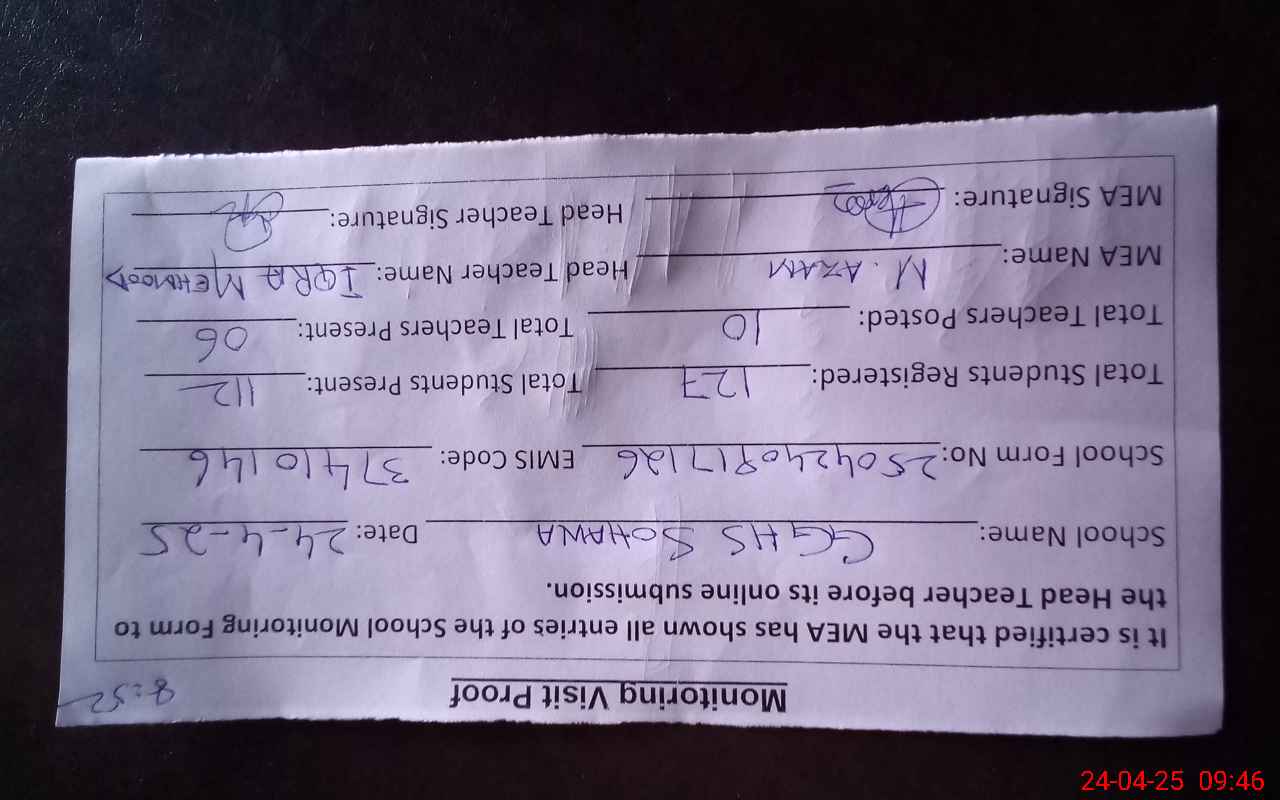 Monitoring Visit Proof 8:52
It is certified that the MEA has shown all entries of the School Monitoring Form to
the Head Teacher before its online submission.
School Name: GGHS SOHAWA Date: 24-4-25
School Form No: 2504240917126 EMIS Code: 37410146
Total Students Registered: 127 Total Students Present: 112
Total Teachers Posted: 10 Total Teachers Present: 06
MEA Name: M. AZAM Head Teacher Name: IQRA MEHMOOD
MEA Signature: Head Teacher Signature:
24-04-25 09:46